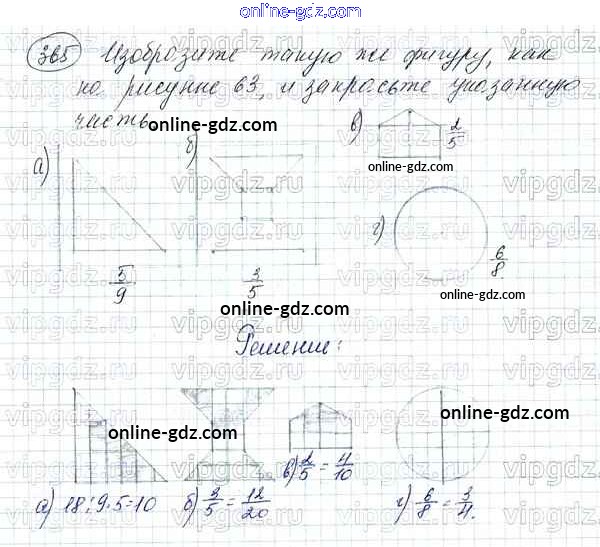 online-gdz.com
365 Изобразите такую же фигуру, как
на рисунке 63, и закрасьте указанную
часть
online-gdz.com
а) б) в) 2/5
online-gdz.com
г) 6/8
5/9 3/5
online-gdz.com
online-gdz.com
Решение:
online-gdz.com
online-gdz.com
а) 18:9·5=10 б) 3/5 = 12/20 в) 2/5 = 4/10 г) 6/8 = 3/4.
vipgdz.ru